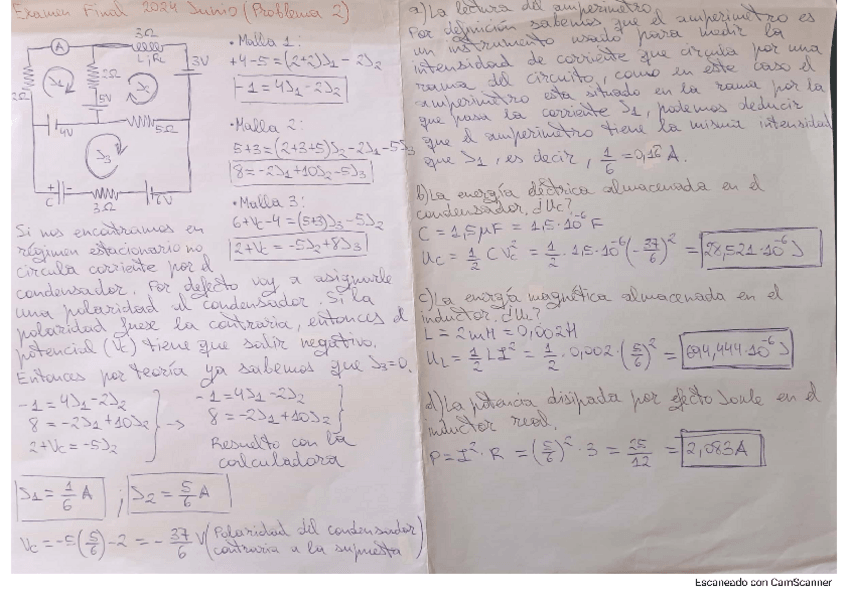 Examen Final 2024 Junio (Problema 2)
A
3Ω
L, RL
3V
2Ω
2Ω
I1
I2
5V
4V
5Ω
I3
C
3Ω
6V
• Malla 1:
+4-5=(2+2)I1 - 2I2
-1=4I1-2I2
• Malla 2:
5+3=(2+3+5)I2-2I1-5I3
8=-2I1+10I2-5I3
• Malla 3:
6+Vc-4=(5+3)I3-5I2
2+Vc=-5I2+8I3
Si nos encontramos en
régimen estacionario no
circula corriente por el
condensador. Por defecto voy a asignarle
una polaridad al condensador. Si la
polaridad fuese la contraria, entonces el
potencial (Vc) tiene que salir negativo.
Entonces por teoría ya sabemos que I3=0.
-1=4I1-2I2
8=-2I1+10I2
2+Vc=-5I2
→
-1=4I1-2I2
8=-2I1+10I2
Resuelto con la
calculadora
I1=1/6 A ; I2=5/6 A
Vc=-5(5/6)-2=-37/6 V (Polaridad del condensador
contraria a la supuesta)
a) La lectura del amperímetro.
Por definición sabemos que el amperímetro es
un instrumento usado para medir la
intensidad de corriente que circula por una
rama del circuito, como en este caso el
amperímetro esta situado en la rama por la
que pasa la corriente I1, podemos deducir
que el amperímetro tiene la misma intensidad
que I1, es decir, 1/6=0,16 A.
b) La energía eléctrica almacenada en el
condensador. ¿Uc?
C = 1,5μF = 1,5·10^-6 F
Uc = 1/2 C Vc^2 = 1/2 · 1,5·10^-6 (-37/6)^2 = 28,521·10^-6 J
c) La energía magnética almacenada en el
inductor. ¿UL?
L = 2mH = 0,002H
UL = 1/2 LI^2 = 1/2 · 0,002 · (5/6)^2 = 694,444·10^-6 J
d) La potencia disipada por efecto Joule en el
inductor real.
P = I^2 · R = (5/6)^2 · 3 = 25/12 = 2,083A
Escaneado con CamScanner